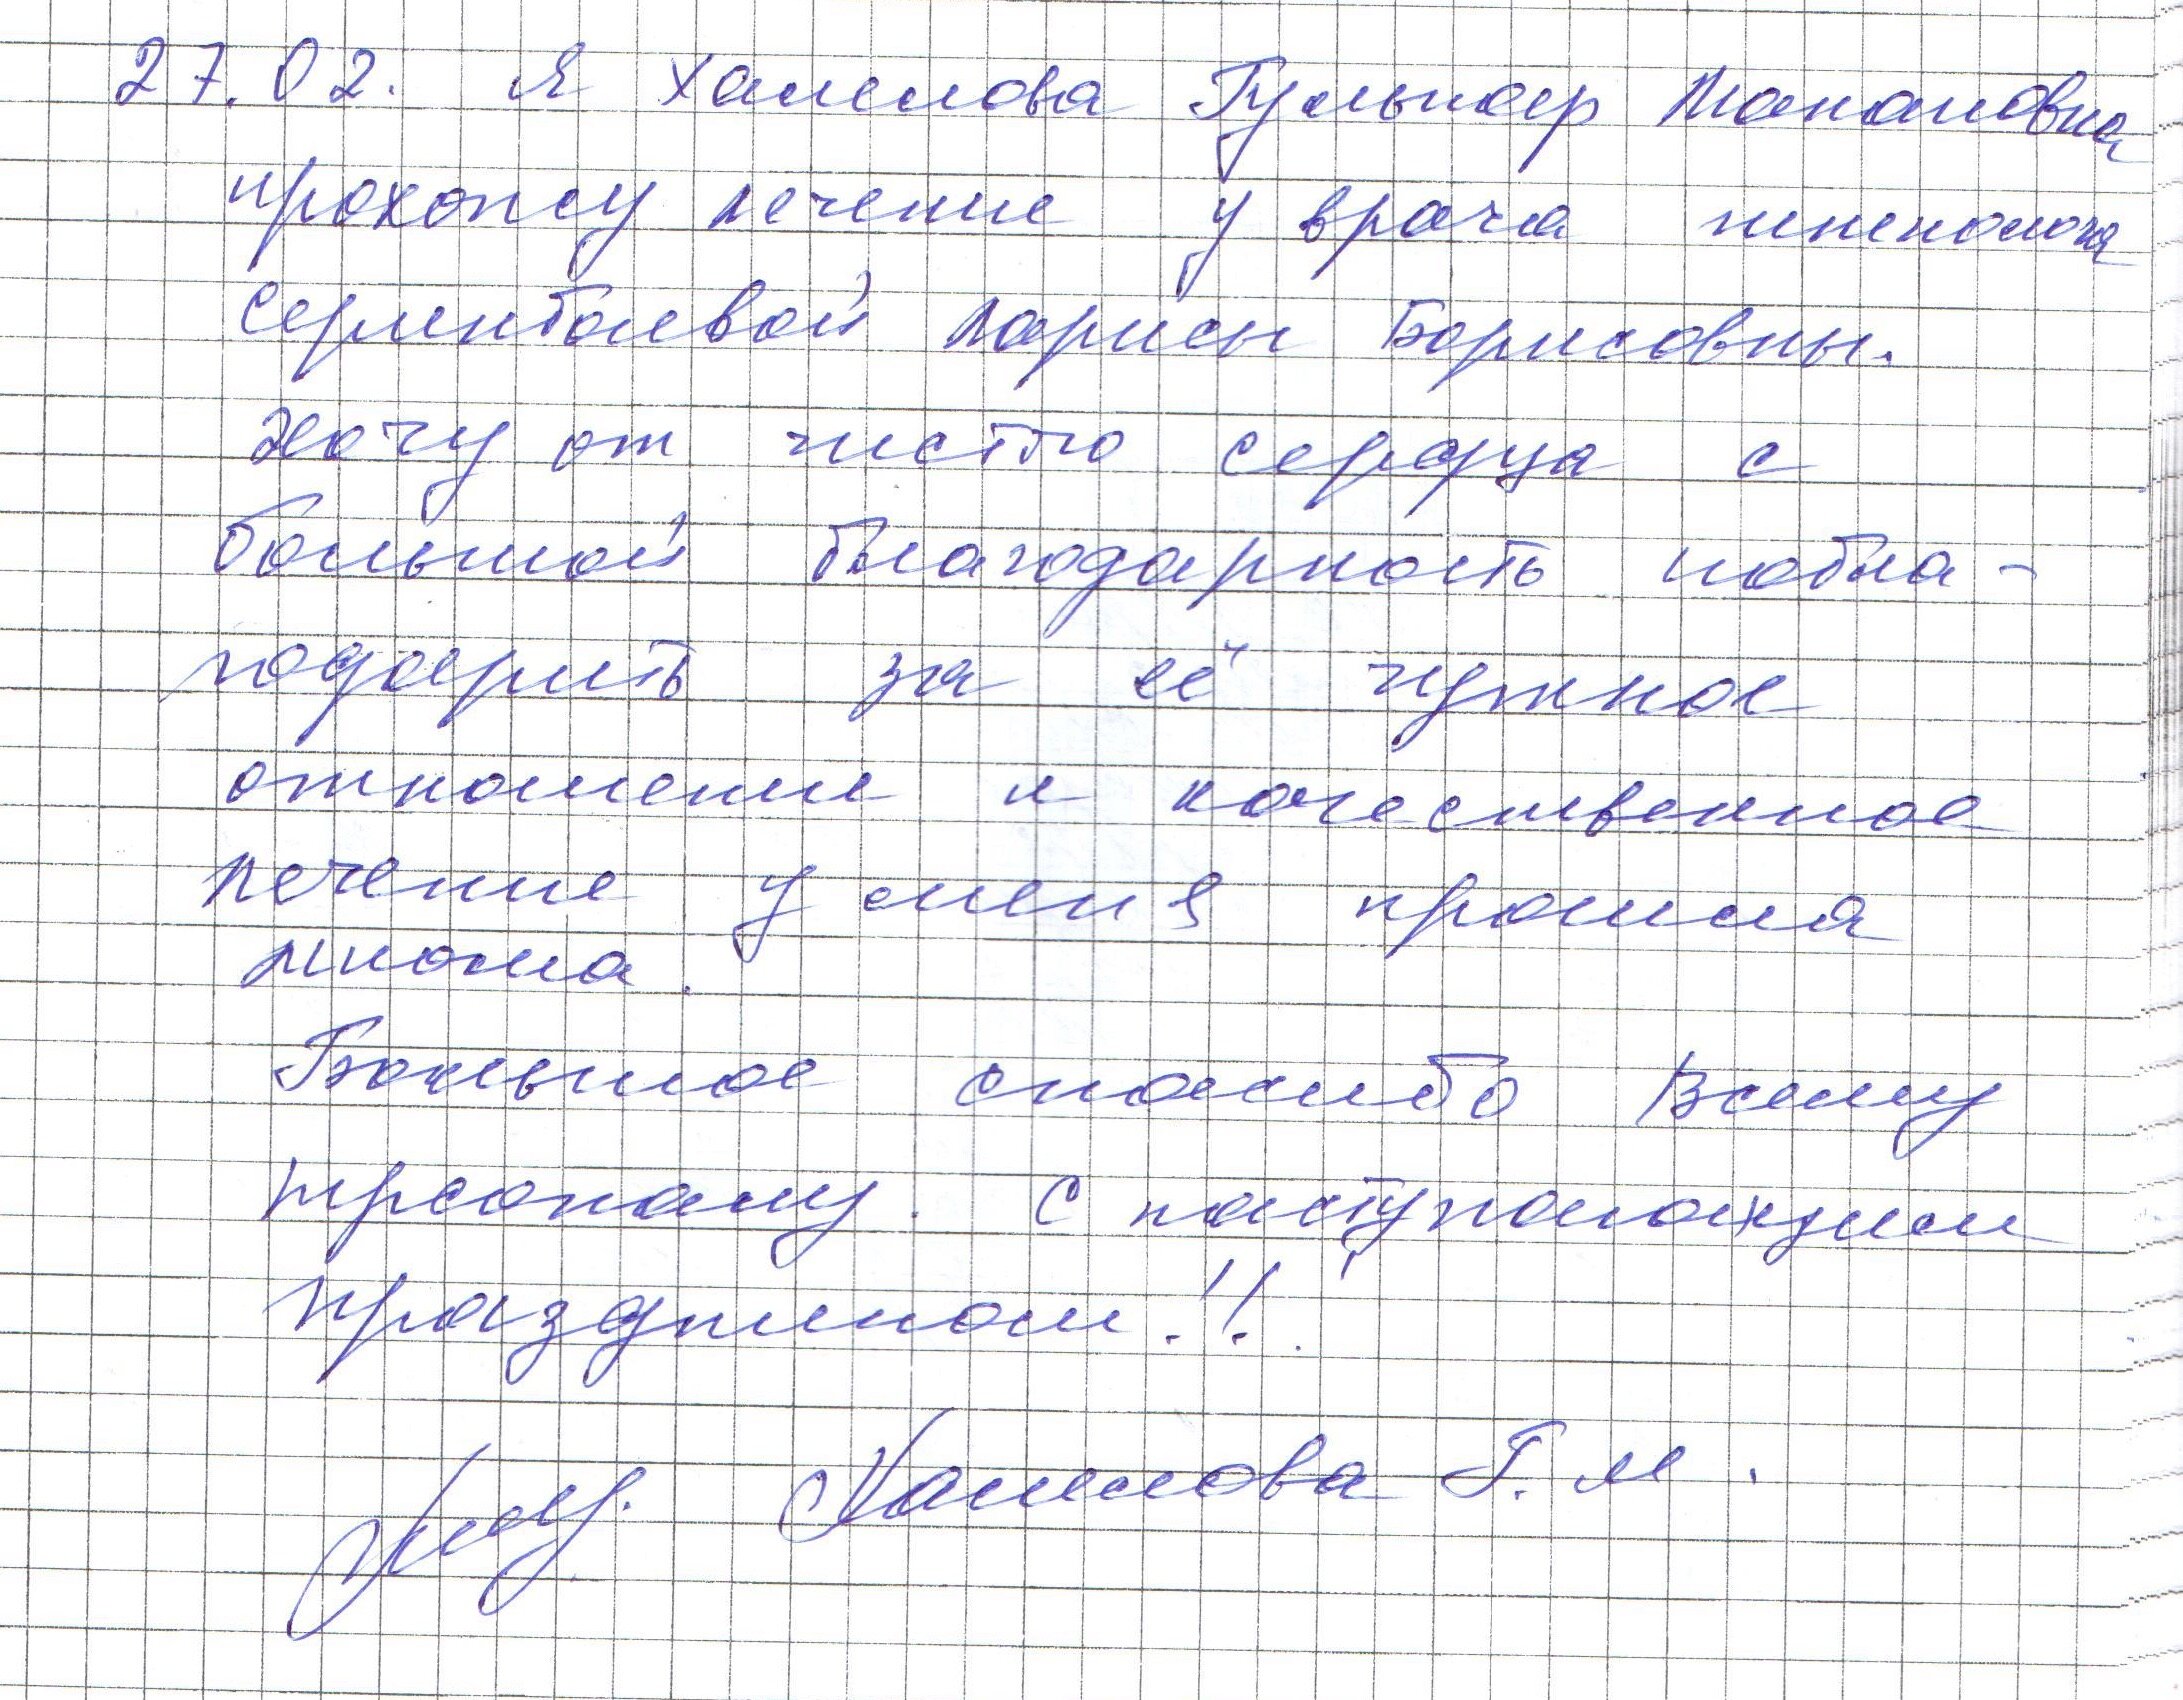 27.02. Я Халелова Гульнар Манаповна
прохожу лечение у врача гинеколога
Серикбаевой Ларисы Борисовны.
Хочу от чисто сердца с
большой благодарность побла-
годарить за её чуткое
отношение и качественное
лечение у меня прошла
миома.
Большое спасибо всему
персоналу. С наступающим
праздником!!!
Халелова Г. М.